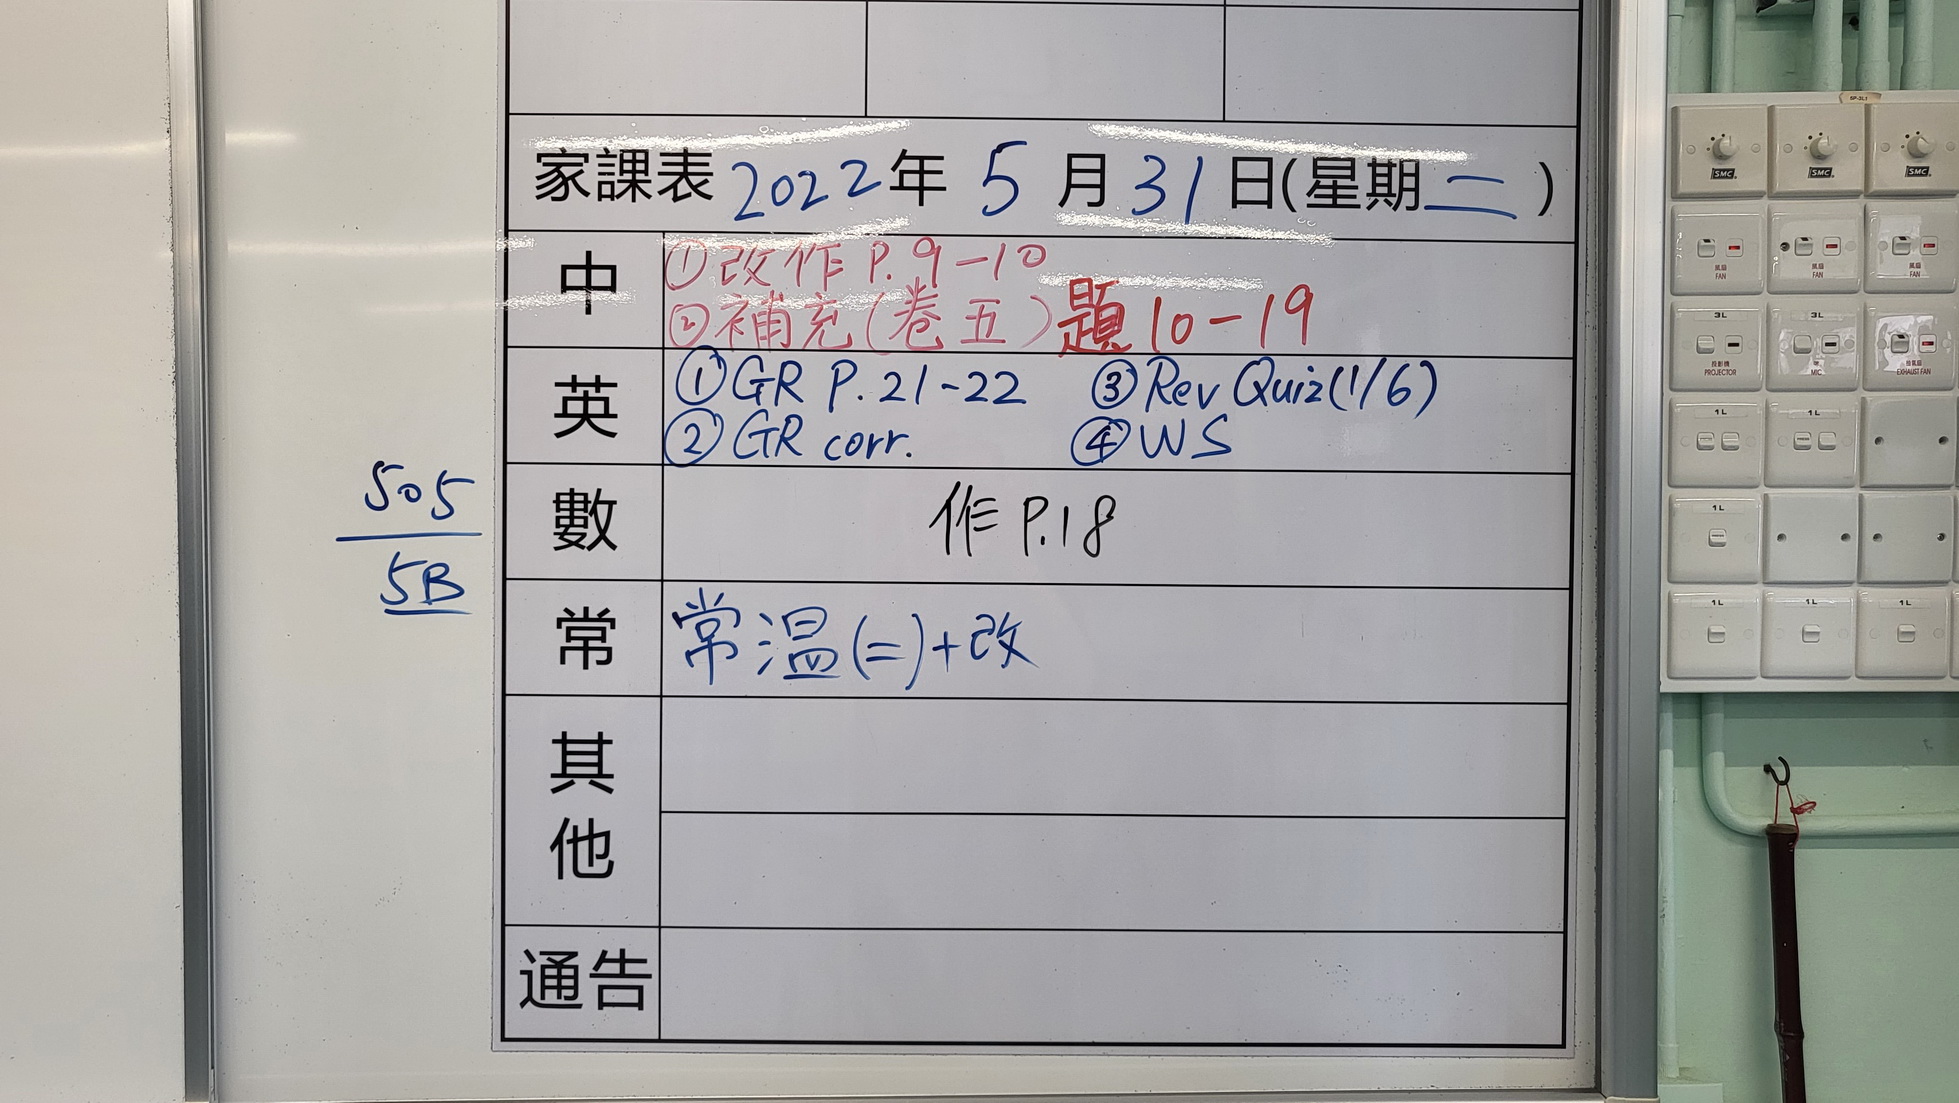 家課表 2022年 5月31日(星期二)
中
①改作 P.9-10
②補充(卷五)題10-19
英
①GR P.21-22 ③Rev Quiz(1/6)
②GR corr. ④WS
數
作 P.18
常
常溫(二)+改
其他
通告
505
5B
5P-3L1
SMC SMC SMC
風扇 FAN
風扇 FAN
風扇 FAN
3L 3L
投影機 PROJECTOR
咪 MIC
抽氣扇 EXHAUST FAN
1L 1L
1L
1L 1L 1L